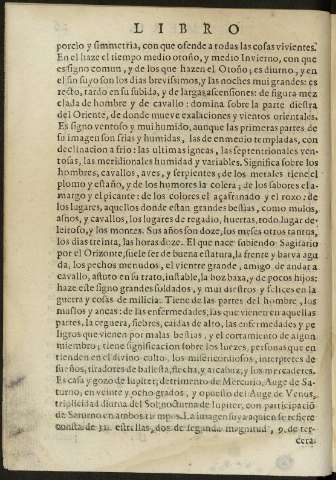 LIBRO
porelo y simmetria, con que ofende a todas las cosas vivientes.
En el haze el tiempo medio otoño, y medio Invierno, con que
es signo comun, y de los que hazen el Otoño; es diurno, y en
el fin suyo son los dias brevissimos, y las noches mui grandes: es
recto, tardo en su subida, y de largas ascensiones: de figura mez
clada de hombre y de cavallo: domina sobre la parte diestra
del Oriente, de donde mueve exalaciones y vientos orientales.
Es signo ventoso y mui humido, aunque las primeras partes de
su imagen son frias y humidas, las de enmedio templadas, con
declinacion a frio: las ultimas igneas, las septentrionales ven-
tosas, las meridionales humidas y variables. Significa sobre los
hombres, cavallos, aves, y serpientes; de los metales tiene el
plomo y estaño, y de los humores la colera; de los sabores el a-
margo y el picante: de los colores el açafranado y el roxo: de
los lugares, aquellos donde estan grandes bestias, como mulos,
asnos, y cavallos, los lugares de regadio, huertas, todo lugar de-
leitoso, y los montes. Sus años son doze, los meses otros tantos,
los dias treinta, las horas doze. El que nace subiendo Sagitario
por el Orizonte, suele ser de buena estatura, la frente y barva agu
da, los pechos menudos, el vientre grande, amigo de andar a
cavallo, astuto en su trato, instable, la boz baxa, y de pocos hijos:
haze este signo grandes soldados, y mui diestros y felices en la
guerra y cosas de milicia. Tiene de las partes del hombre, los
muslos y ancas: de las enfermedades, las que vienen en aquellas
partes, la ceguera, fiebres, caidas de alto, las enfermedades y pe
ligros que vienen por malas bestias, y el cortamiento de algun
miembro; tiene significacion sobre los Iuezes, personas que en
tienden en el divino culto, los misericordiosos, interpretes de
sueños, tiradores de ballesta, flecha, y arcabuz, y los mercaderes.
Es casa y gozo de Iupiter; detrimento de Mercurio, Auge de Sa-
turno, en veinte y ocho grados, y opuesto del Auge de Venus,
triplicidad diurna del Sol, nocturna de Iupiter, con participació
de Saturno en ambos tiempos. La imagen suya a quien se refiere
consta de 31. estrellas, dos de segunda magnitud, 9. de ter-
cera